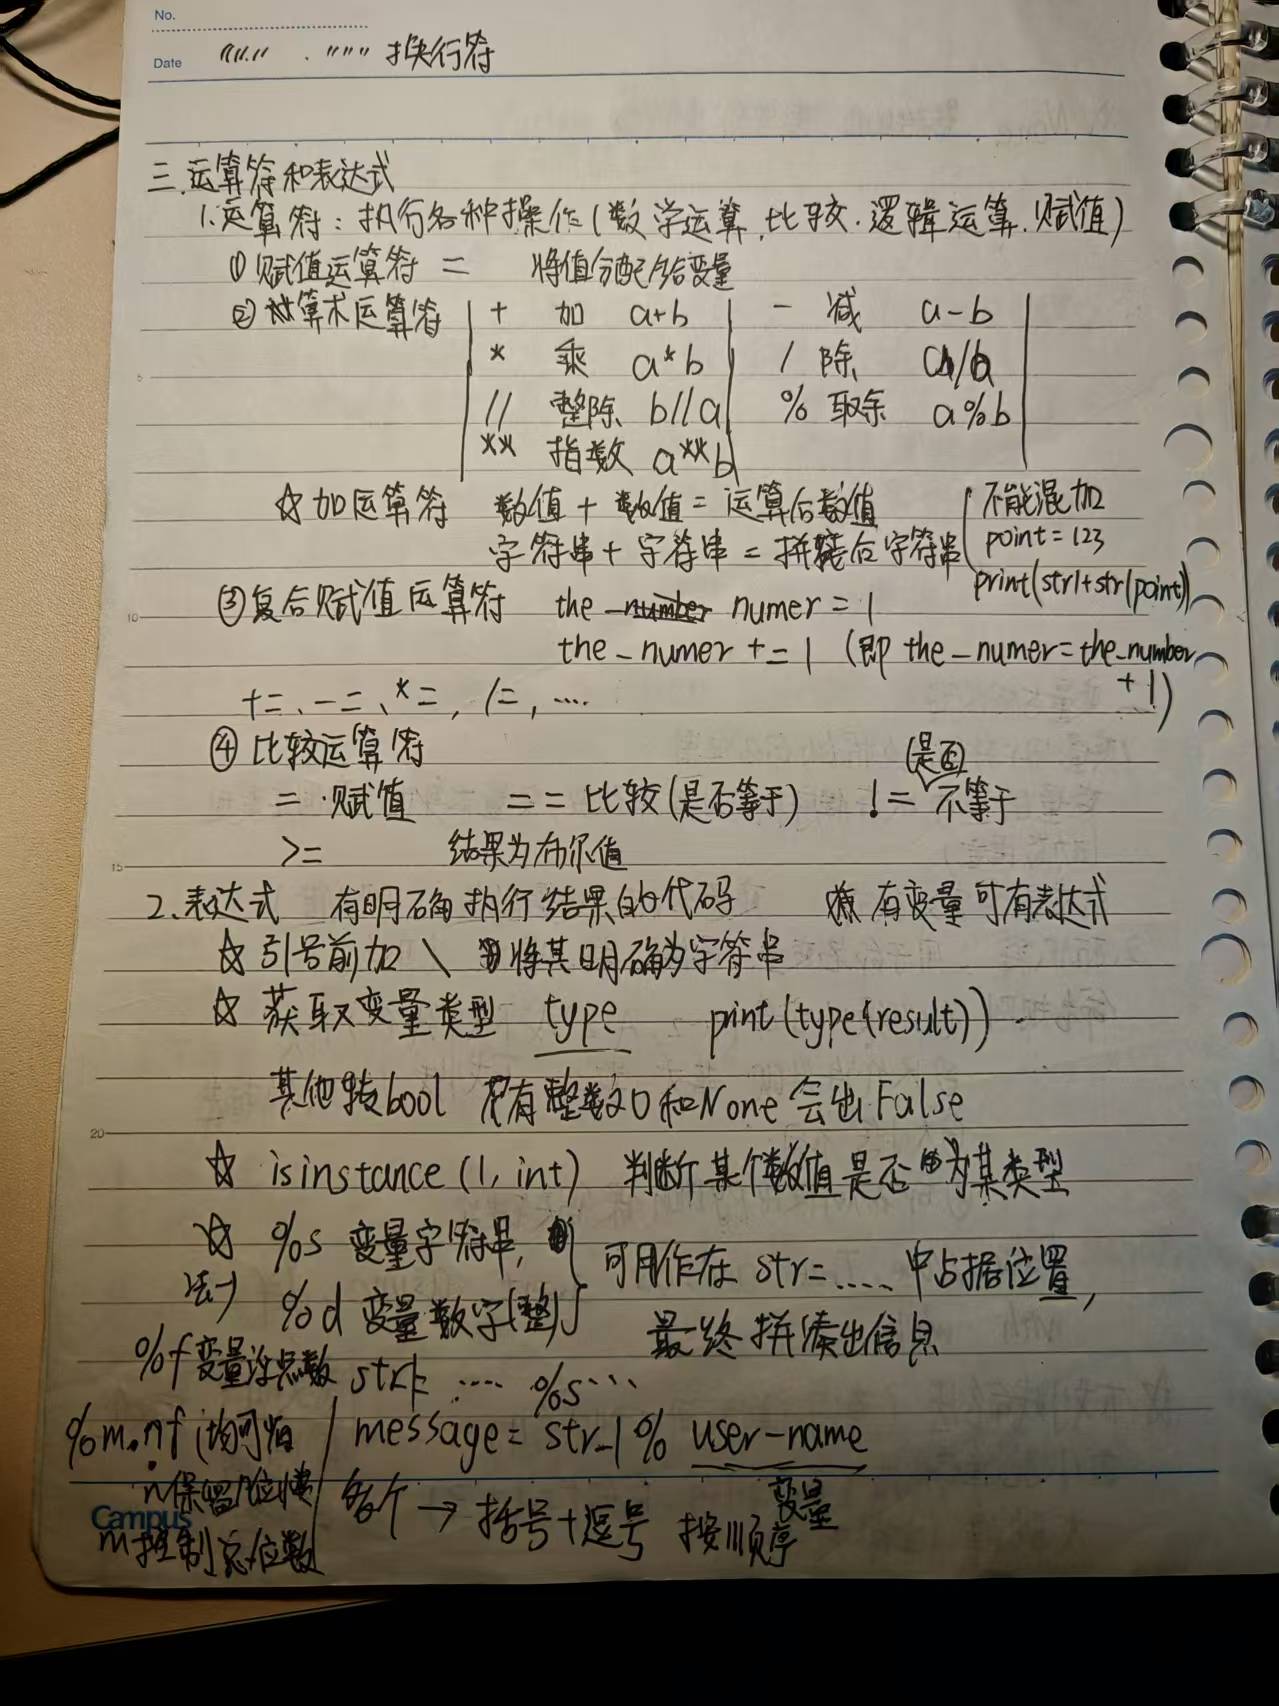 No.
Date """ . """ 换行符
三.运算符和表达式
1.运算符：执行各种操作(数学运算.比较.逻辑运算.赋值)
①赋值运算符 = 将值分配给变量
②算术运算符 + 加 a+b - 减 a-b
* 乘 a*b / 除 a/b
5
// 整除 b//a % 取余 a%b
** 指数 a**b
☆加运算符 数值+数值=运算后数值 不能混加
字符串+字符串=拼接后字符串 point=123
print(str1+str(point))
10 ③复合赋值运算符 the_numer=1
the_numer+=1 (即 the_numer=the_number
+1)
+=、-=、*=, /=, ....
④比较运算符
(是否)
= 赋值 == 比较(是否等于) != 不等于
15 >= 结果为布尔值
2.表达式 有明确执行结果的代码 有变量可有表达式
☆ 引号前加 \ 将其明确为字符串
☆ 获取变量类型 type print(type(result)).
其他转bool 只有整数0和None会出False
20
☆ isinstance(1, int) 判断某个数值是否为某类型
☆ %s 变量字符串, 可用作在 str=..... 中占据位置,
%d 变量数字(整) 最终拼凑出信息
%f变量浮点数 str1= .... %s...
%m.nf message= str_1 % user-name
变量
n保留几位 多个→括号+逗号 按顺序
Campus
m控制总位数